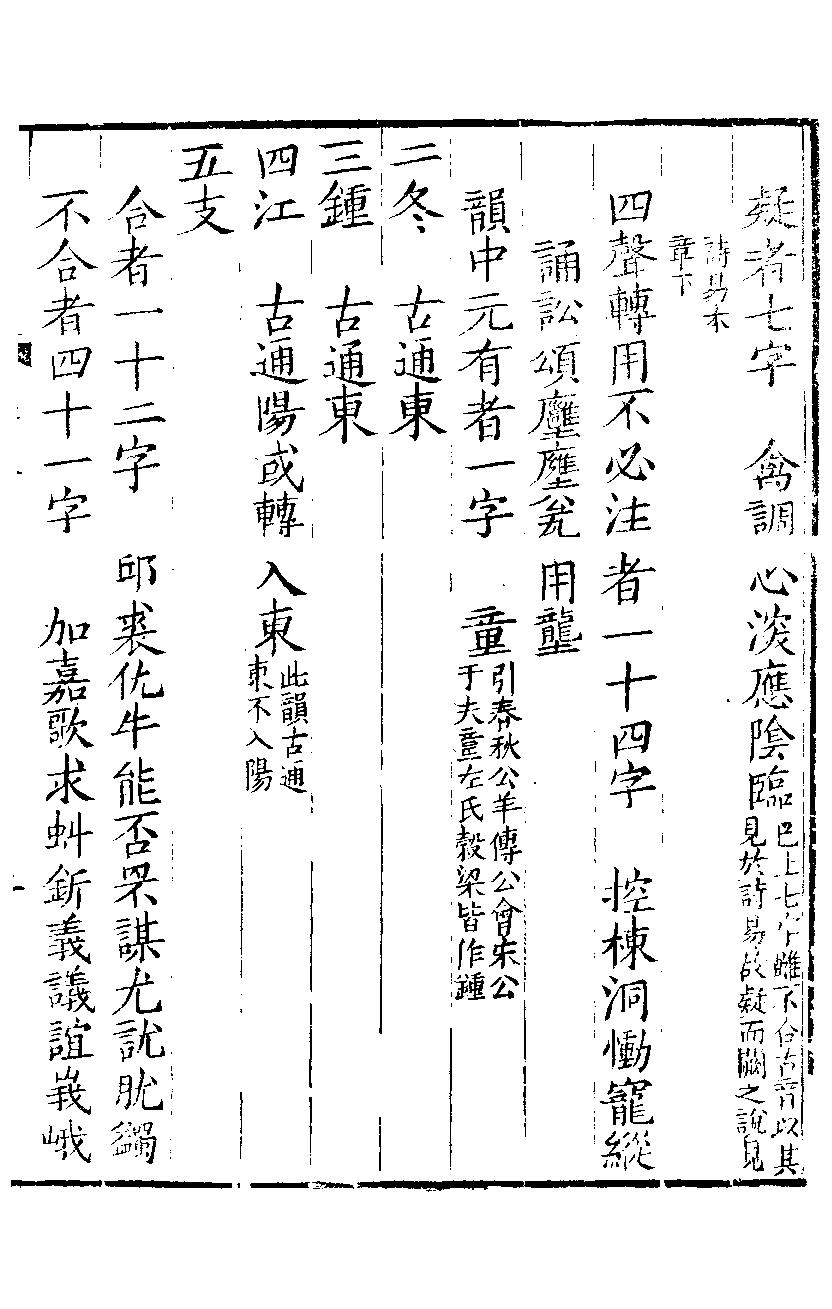 疑者七字　禽調心淡應陰臨已上七字雖不合古音以其見於詩易故疑而闕之說見
詩易本章下
四聲轉用不必注者一十四字　控棟洞慟寵縱
誦訟頌壅甕用龔
韻中元有者一字　童引春秋公羊傳公會宋公于夫童左氏穀梁皆作鍾
二冬　古通東
三鍾　古通東
四江　古通陽或轉入東此韻古通東不入陽
五支
合者一十二字　邱裘仇牛能否罘謀尤訧肬
不合者四十一字　加嘉歌求蚪釿義議誼峩峨